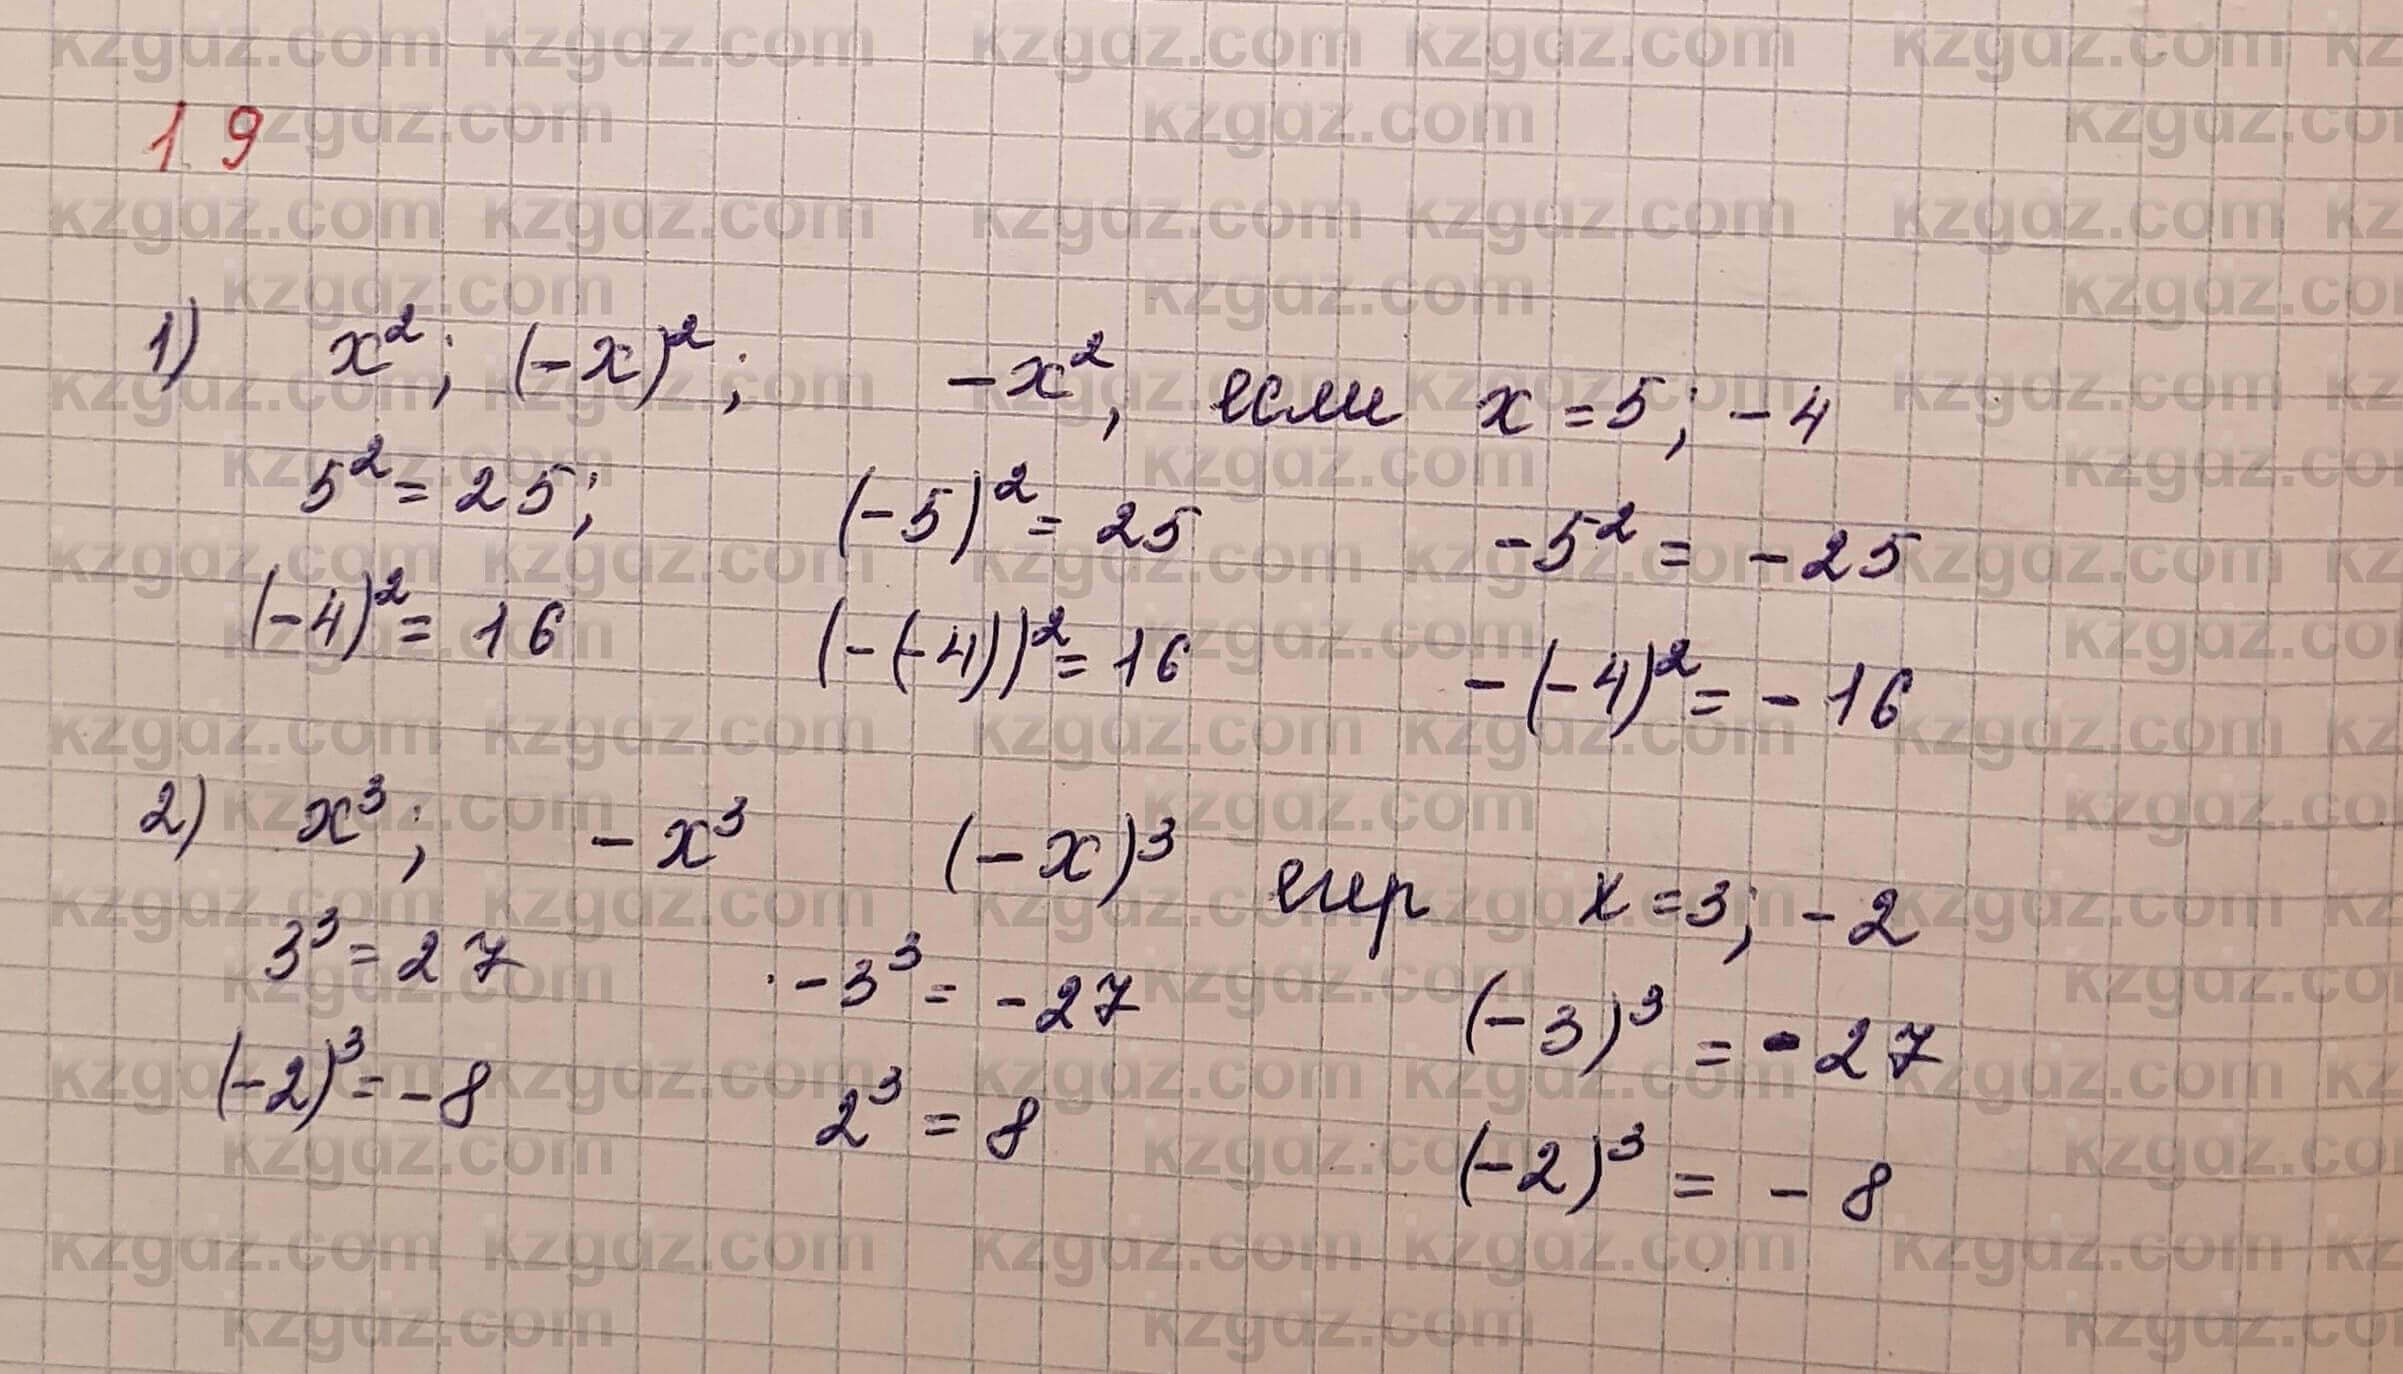 1 9
1) x²; (-x)²; -x², если x = 5; -4
5² = 25; (-5)² = 25 -5² = -25
(-4)² = 16 (-(-4))² = 16 -(-4)² = -16
2) x³; -x³ (-x)³ егер x = 3; -2
3³ = 27 -3³ = -27 (-3)³ = -27
(-2)³ = -8 2³ = 8 (-2)³ = -8
kzgdz.com